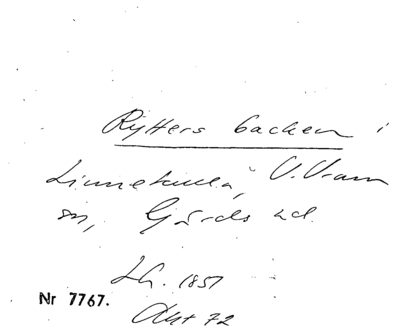 Ryttersbacken i
Linnekulla, V. Vram
sn, Gärds hd.
1851
Nr 7767.
Akt 72